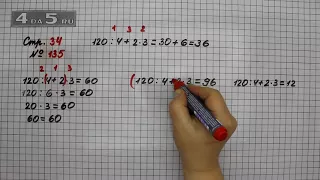 4DA5.RU
Стр. 34
№ 135
1 3 2
120 : 4 + 2 · 3 = 30 + 6 = 36
2 1 3
120 : (4 + 2) · 3 = 60
120 : 6 · 3 = 60
20 · 3 = 60
60 = 60
(120 : 4 + 2 · 3 = 96
120 : 4 + 2 · 3 = 12